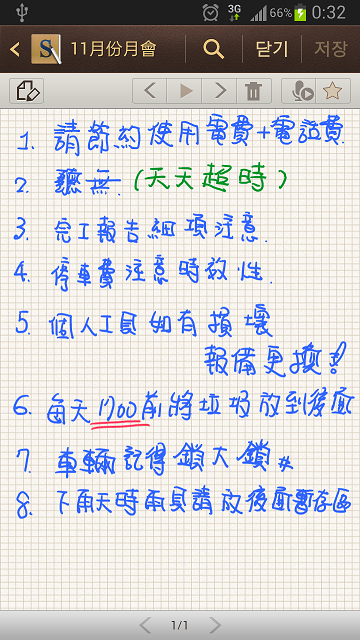 3G 66% 0:32
S 11月份月會 닫기 저장
1. 請節約使用電費+電話費.
2. 聽無. (天天超時)
3. 完工報告細項注意.
4. 停車費注意時效性.
5. 個人工具如有損壞
報備更換!
6. 每天1700前將垃圾放到後面
7. 車輛記得鎖大鎖
8. 下雨天時雨具請放後面暫存區
1/1